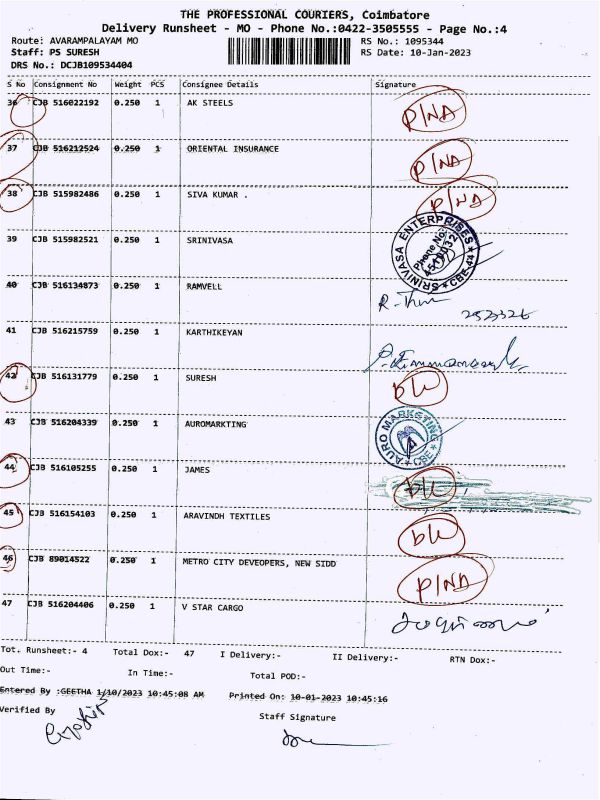 THE PROFESSIONAL COURIERS, Coimbatore
Delivery Runsheet - MO - Phone No.:0422-3505555 - Page No.:4
Route: AVARAMPALAYAM MO RS No.: 1095344
Staff: PS SURESH RS Date: 10-Jan-2023
DRS No.: DCJB109534404
S No Consignment No Weight PCS Consignee Details Signature
36 CJB 516022192 0.250 1 AK STEELS P/NA
37 CJB 516212524 0.250 1 ORIENTAL INSURANCE P/NA
38 CJB 515982486 0.250 1 SIVA KUMAR . P/NA
39 CJB 515982521 0.250 1 SRINIVASA SRINIVASA ENTERPRISES Phone No: CBE-44
40 CJB 516134873 0.250 1 RAMVELL
41 CJB 516215759 0.250 1 KARTHIKEYAN
42 CJB 516131779 0.250 1 SURESH DW
43 CJB 516204339 0.250 1 AUROMARKTING AURO MARKETING CBE
44 CJB 516105255 0.250 1 JAMES DW
45 CJB 516154103 0.250 1 ARAVINDH TEXTILES DW
46 CJB 89014522 0.250 1 METRO CITY DEVEOPERS, NEW SIDD P/NA
47 CJB 516204406 0.250 1 V STAR CARGO
Tot. Runsheet:- 4 Total Dox:- 47 I Delivery:- II Delivery:- RTN Dox:-
Out Time:- In Time:- Total POD:-
Entered By :GEETHA 1/10/2023 10:45:08 AM Printed On: 10-01-2023 10:45:16
Verified By Staff Signature